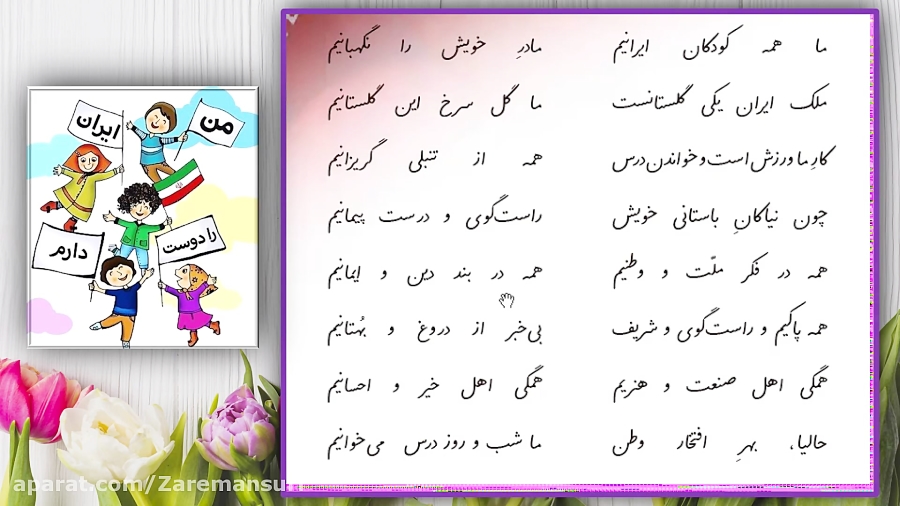 ما همه کودکان ایرانیم مادرِ خویش را نگهبانیم
ملک ایران یکی گلستانست ما گل سرخ این گلستانیم
کارِ ما ورزش است و خواندن درس همه از تنبلی گریزانیم
چون نیاکانِ باستانی خویش راست‌گوی و درست پیمانیم
همه در فکر ملّت و وطنیم همه در بند دین و ایمانیم
همه پاکیم و راست‌گوی و شریف بی‌خبر از دروغ و بُهتانیم
همگی اهل صنعت و هنریم همگی اهل خیر و احسانیم
حالیا، بهرِ افتخار وطن ما شب و روز درس می‌خوانیم
من
ایران
را دوست
دارم
aparat.com/Zaremansu